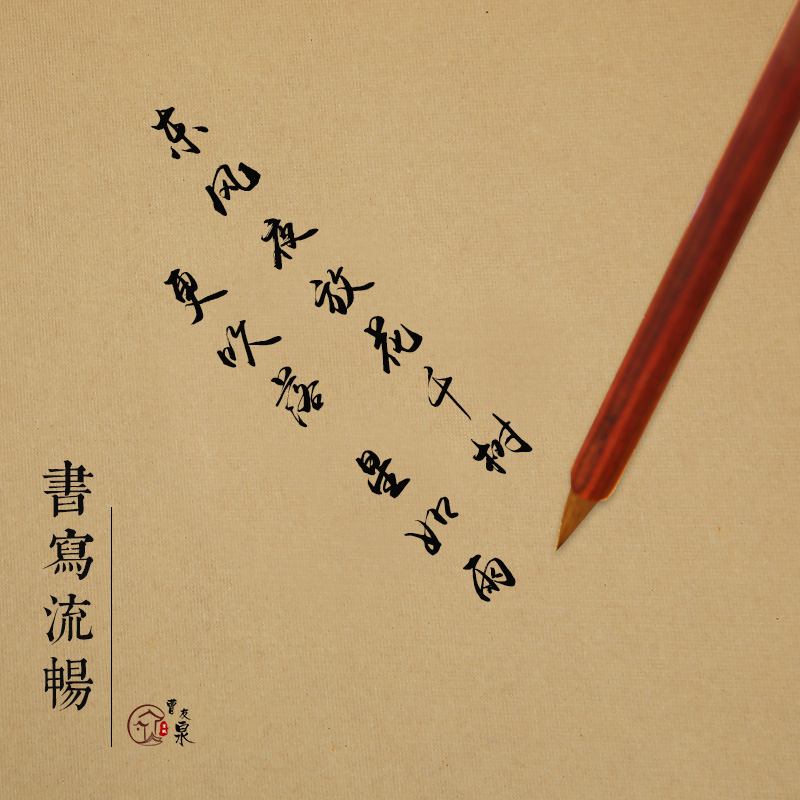 东风夜放花千树
更吹落 星如雨
書寫流暢
曹友泉